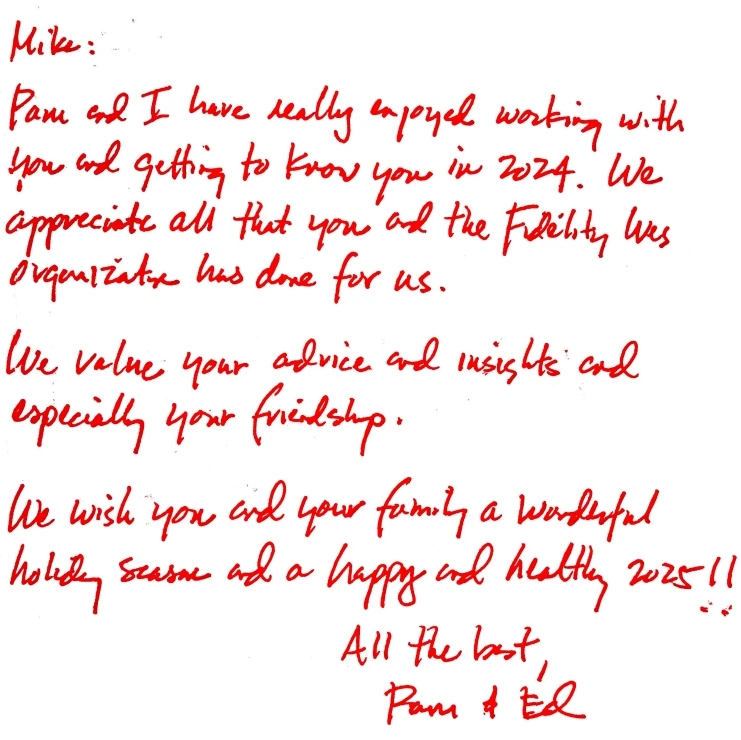 Mike:
Pam and I have really enjoyed working with
you and getting to know you in 2024. We
appreciate all that you and the Fidelity Wes
organization has done for us.
We value your advice and insights and
especially your friendship.
We wish you and your family a wonderful
holiday season and a happy and healthy 2025!!
All the best,
Pam & Ed